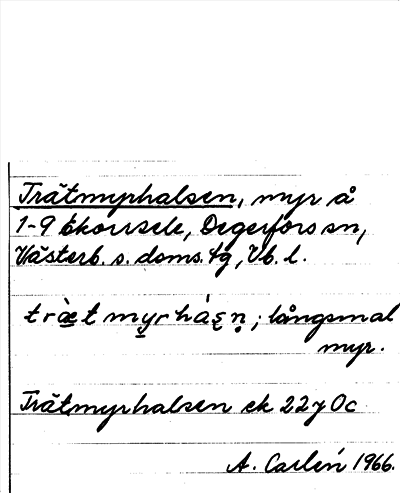 Trätmyrhalsen, myr å
1-9 Ekorrsele, Degerfors sn,
Västerb. s. doms. tg, Vb. l.
træ̀tmyrháʂn̥; långsmal
myr.
Trätmyrhalsen ek 22 y 0c
A. Carlén 1966.